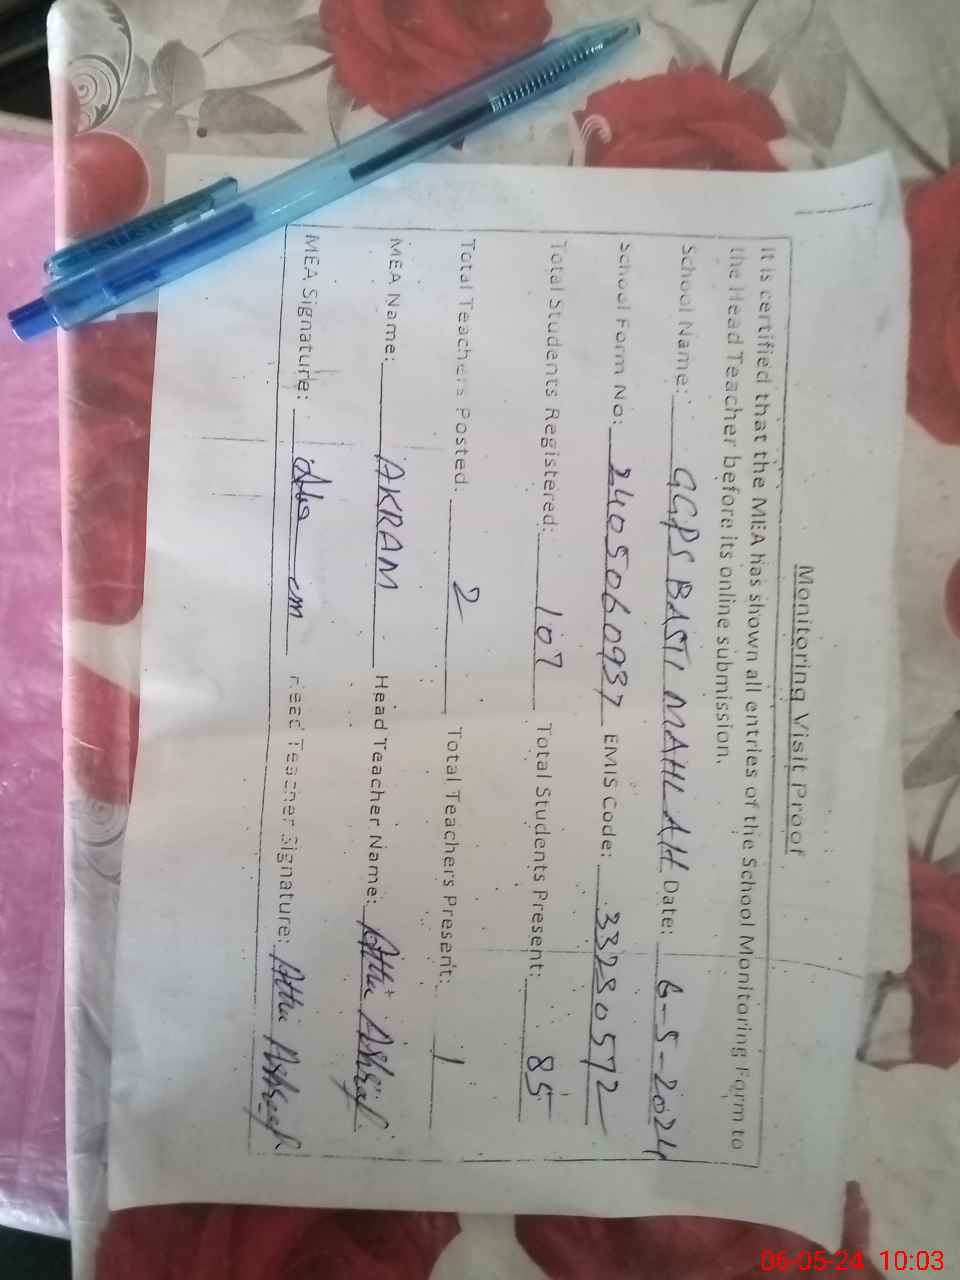 Monitoring Visit Proof
It is certified that the MEA has shown all entries of the School Monitoring Form to
the Head Teacher before its online submission.
School Name: GGPS BASTI MAHLAH Date: 6-5-2024
School Form No: 2405060937 EMIS Code: 33230572
Total Students Registered: 107 Total Students Present: 85
Total Teachers Posted: 2 Total Teachers Present: 1
MEA Name: AKRAM Head Teacher Name: Athia Ashraf
MEA Signature: Head Teacher Signature: Athia Ashraf
06-05-24 10:03